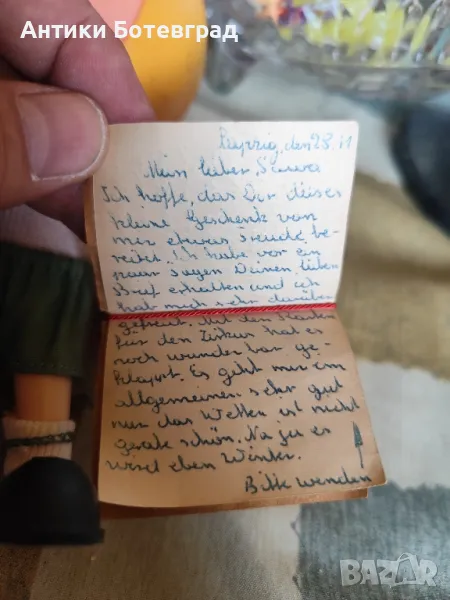 Антики Ботевград
Leipzig, den 28. 11
Mein lieber
Ich hoffe, das Dir dieses
kleine Geschenk von
mir etwas Freude be-
reitet. Ich habe vor ein
paar Tagen Deinen lieben
Brief erhalten und ich
hab mich sehr darüber
gefreut. Mit den Karten
für den Zirkus hat es
noch wunder bar ge-
klappt. Es geht mir im
allgemeinen sehr gut
nur das Wetter ist nicht
gerade schön. Na ja es
wird eben Winter.
Bitte wenden
BAZAR